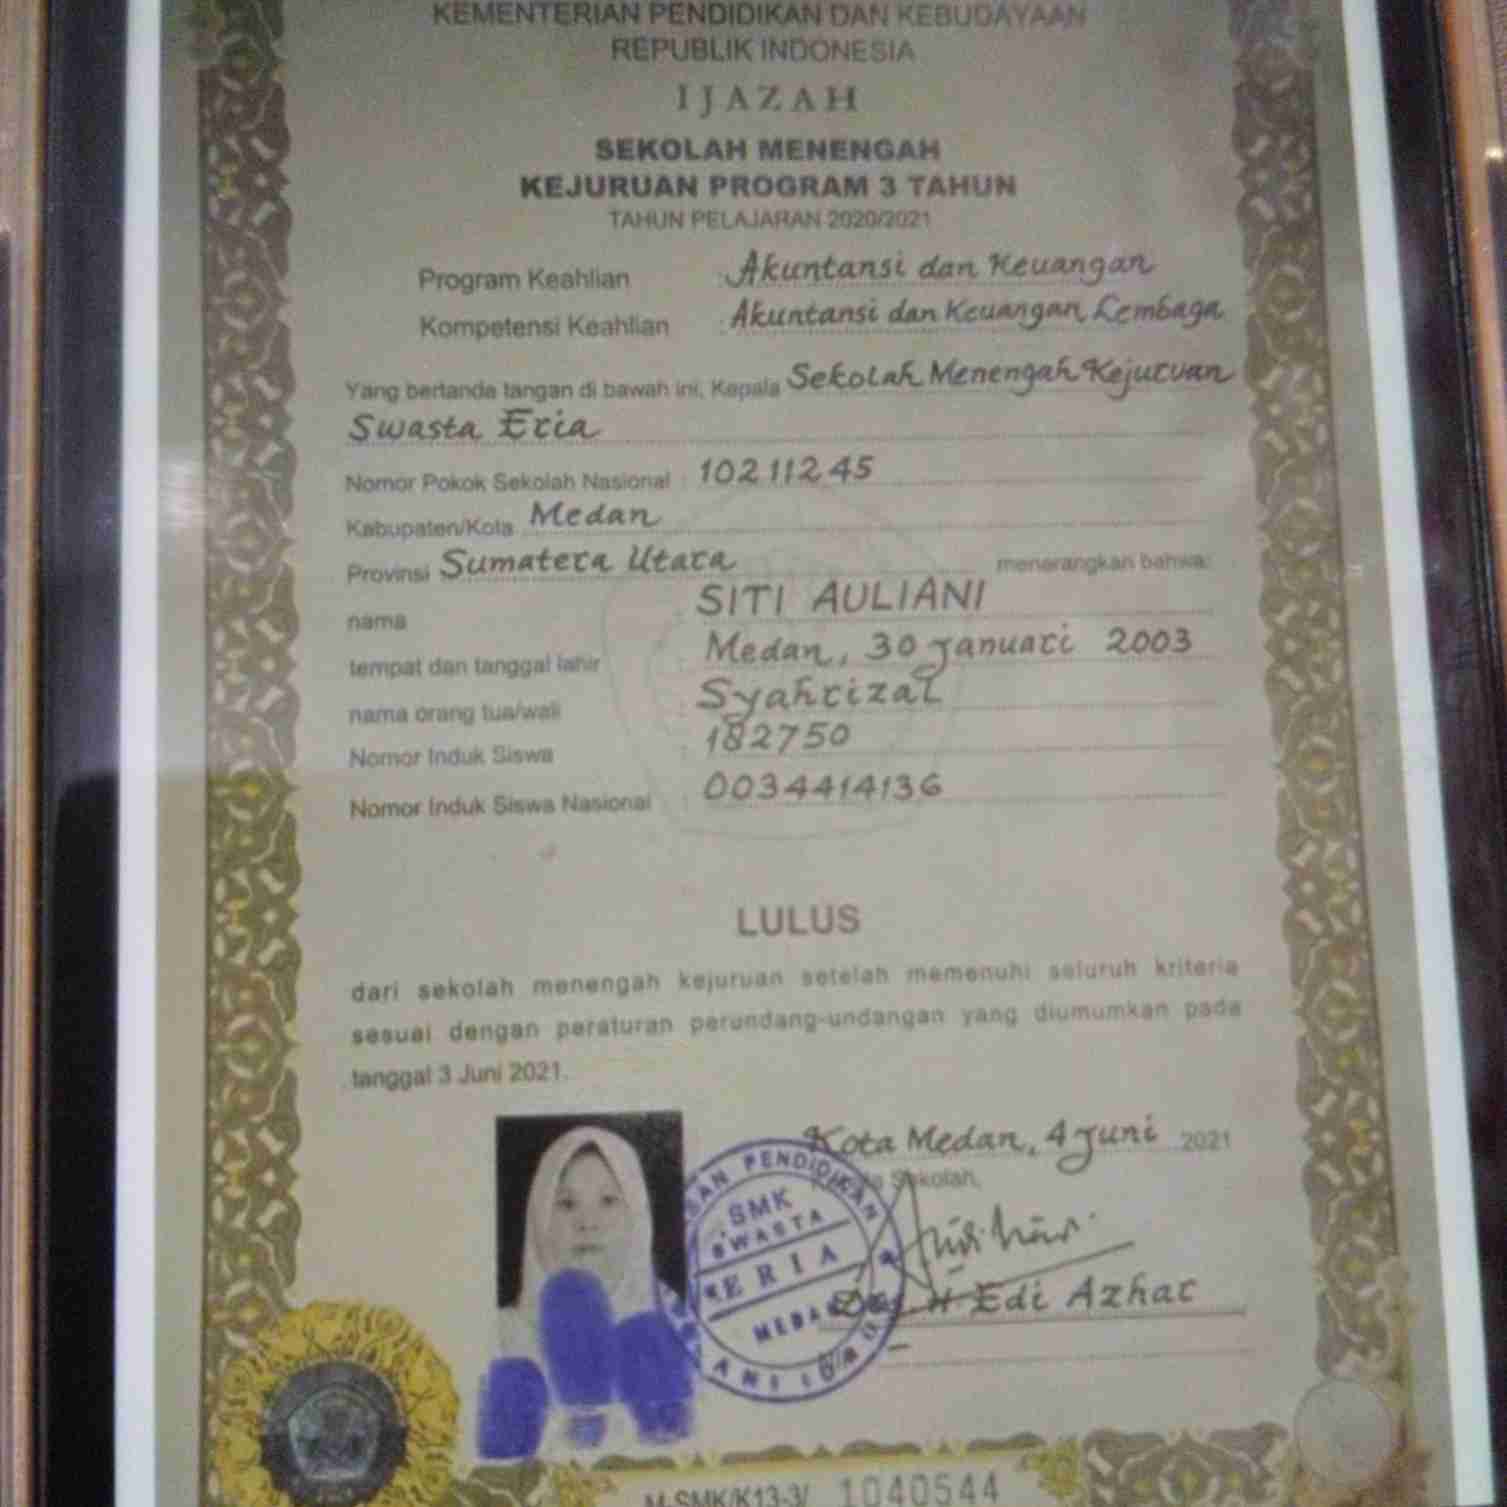 KEMENTERIAN PENDIDIKAN DAN KEBUDAYAAN
REPUBLIK INDONESIA
IJAZAH
SEKOLAH MENENGAH
KEJURUAN PROGRAM 3 TAHUN
TAHUN PELAJARAN 2020/2021
Program Keahlian : Akuntansi dan Keuangan
Kompetensi Keahlian : Akuntansi dan Keuangan Lembaga
Yang bertanda tangan di bawah ini, Kepala Sekolah Menengah Kejuruan
Swasta Eria
Nomor Pokok Sekolah Nasional : 10211245
Kabupaten/Kota Medan
Provinsi Sumatera Utara menerangkan bahwa:
nama : SITI AULIANI
tempat dan tanggal lahir : Medan, 30 Januari 2003
nama orang tua/wali : Syahrizal
Nomor Induk Siswa : 182750
Nomor Induk Siswa Nasional : 0034414136
LULUS
dari sekolah menengah kejuruan setelah memenuhi seluruh kriteria
sesuai dengan peraturan perundang-undangan yang diumumkan pada
tanggal 3 Juni 2021.
Kota Medan, 4 Juni 2021
Sekolah,
PENDIDIKAN
SMK
SWASTA
ERIA
MEDAN
H Edi Azhar
M-SMK/K13-3/ 1040544